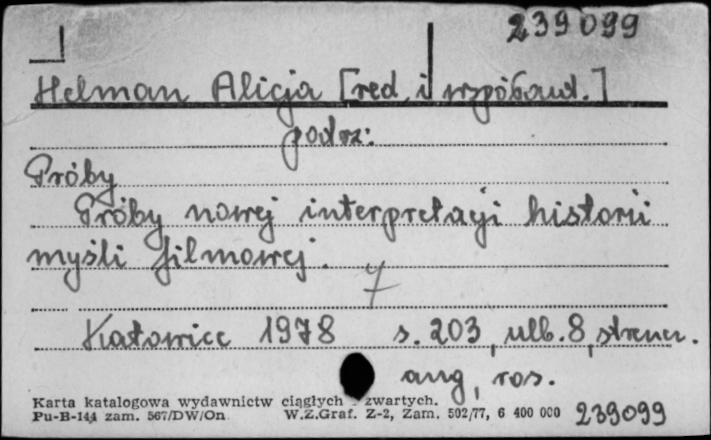 239099
Helman Alicja [red. i współaut.]
podrz:
Próby
Próby nowej interpretacji historii
myśli filmowej.
7
Katowice 1978 s. 203, ulb. 8, streszcz.
ang, ros.
Karta katalogowa wydawnictw ciągłych - zwartych.
Pu-B-144 zam. 567/DW/On W.Z.Graf. Z-2, Zam. 502/77, 6 400 000 239099